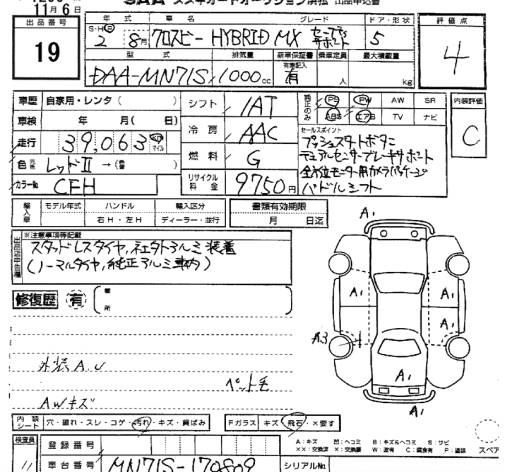 SAA スズキオートオークション浜松 出品申込書
11月 6日
出品番号
19
年式 車名 グレード ドア・形状
2 8月 クロスビー HYBRID MX 5
型式 排気量 新車保証書 乗車定員 最大積載量
DAA-MN71S 1000cc 有 人 kg
評価点
4
車歴 自家用・レンタ( )
車検 年 月( 日)
走行 39,063
色 レッドⅡ →( )
カラーNo. CFH
シフト IAT
冷房 AAC
燃料 G
リサイクル料金 9750円
PS PW AW SR
ABS エアB TV ナビ
セールスポイント
プッシュスタートボタン
デュアルセンサーブレーキサポート
全方位モニター用カメラパッケージ
パドルシフト
内装評価
C
輸入車 モデル年式 ハンドル 輸入区分
年 右H・左H ディーラー・並行
書類有効期限
月 日迄
※注意事項等記載
スタッドレスタイヤ、社外アルミ装着
(ノーマルタイヤ、純正アルミ車内)
修復歴 有
外装A.U
ペット毛
AWキズ
A1
A1
A1
A1
A3
A1
内装シート 穴・破れ・スレ・コゲ・汚れ・キズ・黄ばみ
Fガラス キズ 飛石・×要す
A:キズ U:ヘコミ B:キズ&ヘコミ S:サビ
検査員
登録番号
車台番号 MN71S-170809
シリアルNo.